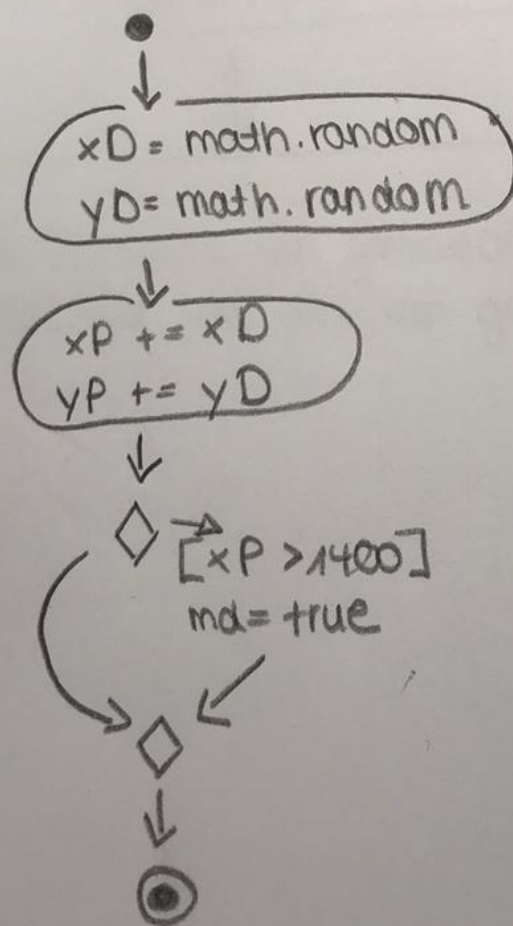 xD = math.random
yD = math.random
xP += xD
yP += yD
[xP >1400]
md = true